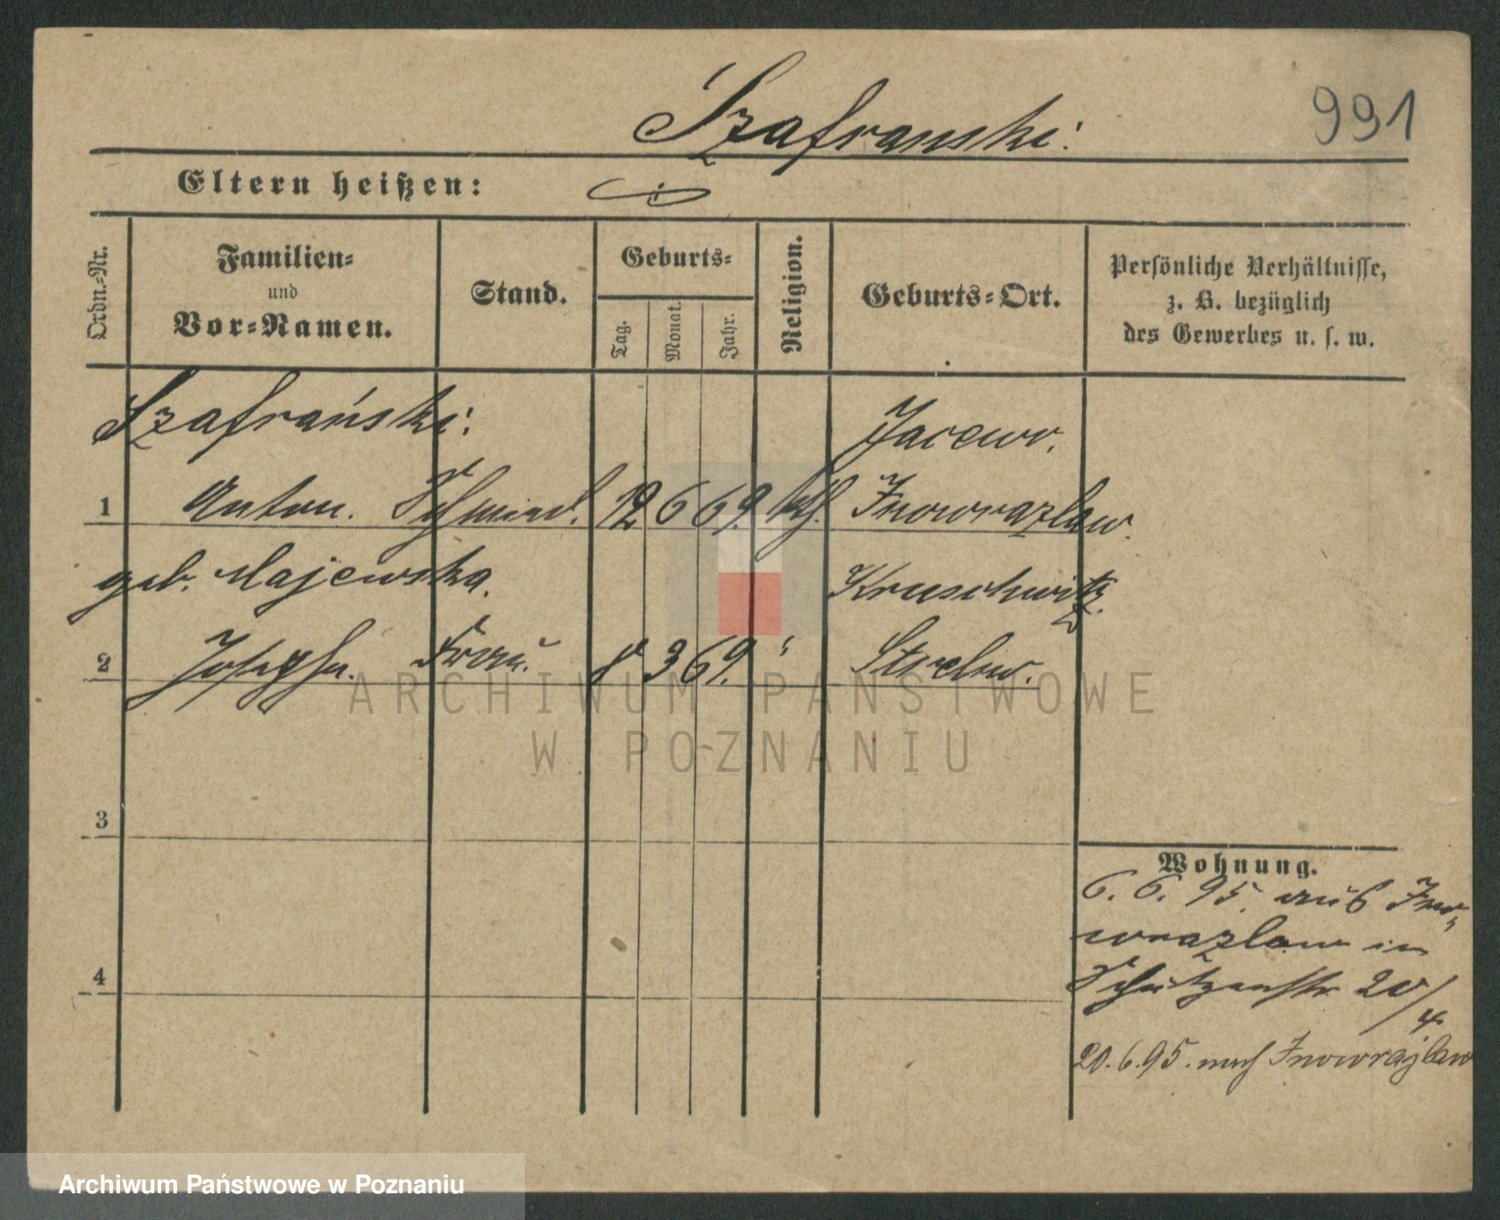 991
Szafranski.
Eltern heißen:
Ordn.-Nr.
Familien-
und
Vor-Namen.
Stand.
Geburts-
Tag.
Monat.
Jahr.
Religion.
Geburts-Ort.
Persönliche Verhältnisse,
z. B. bezüglich
des Gewerbes u. s. w.
Szafrański. Jacewo.
1 Anton. Schmied. 12 6 69. kth. Inowrazlaw.
geb. Majewska. Kruschwitz.
2 Josepha. Frau. 8 3 69. " Strelno.
3
4
Wohnung.
6. 6. 95. aus Ino-
wrazlaw in
Schützenstr 20/
4
20.6.95. nach Inowrazlaw
ARCHIWUM PAŃSTWOWE
W POZNANIU
Archiwum Państwowe w Poznaniu